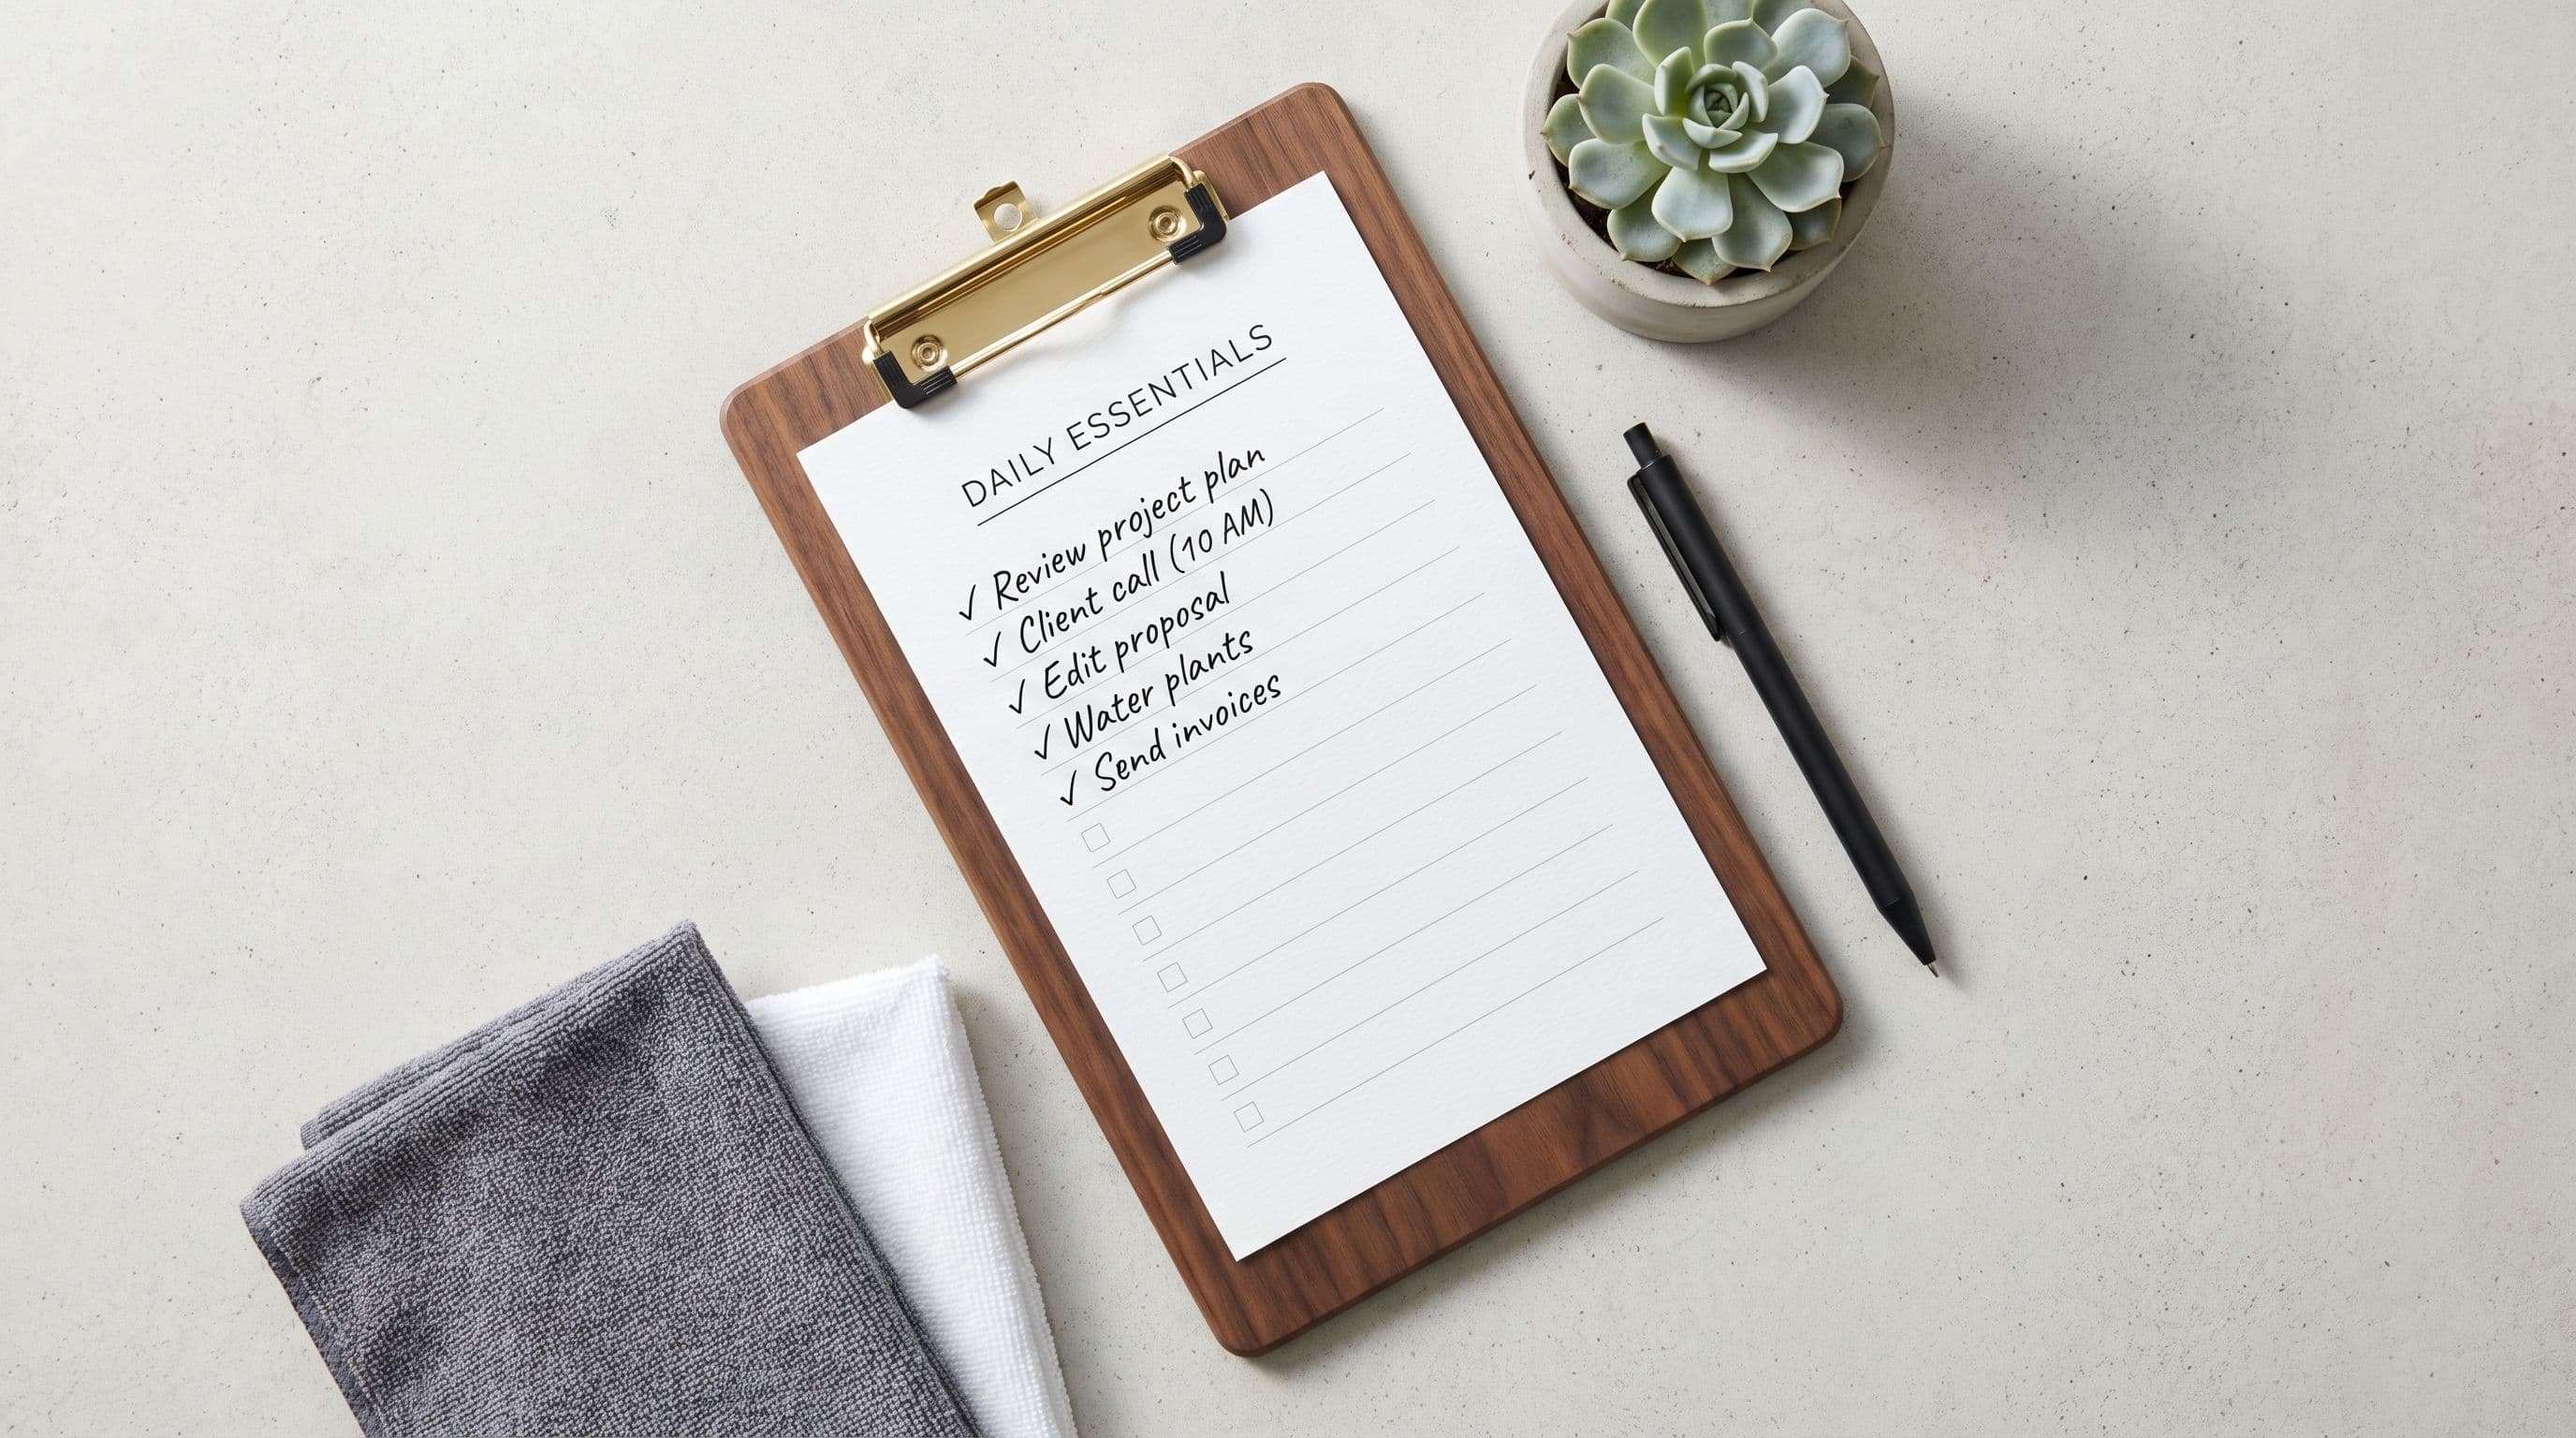 DAILY ESSENTIALS
✓ Review project plan
✓ Client call (10 AM)
✓ Edit proposal
✓ Water plants
✓ Send invoices